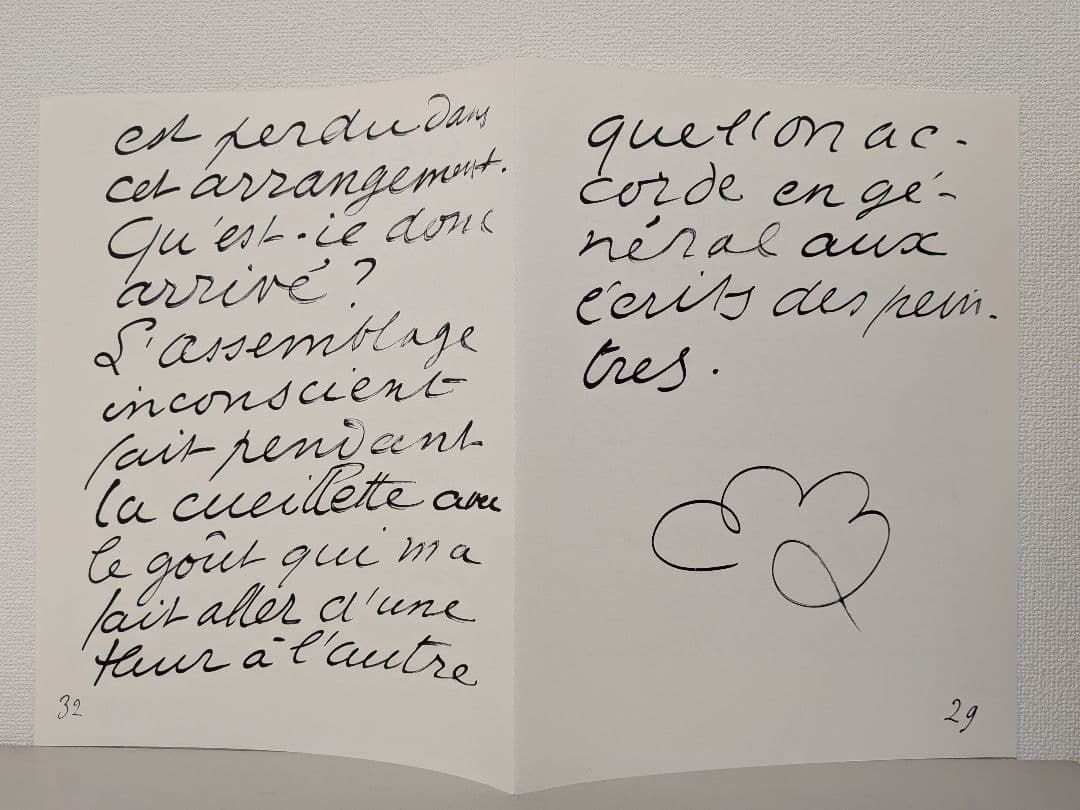 est perdu dans
cet arrangement.
Qu'est-ce donc
arrivé ?
L'assemblage
inconscient
fait pendant
la cueillette avec
le goût qui m'a
fait aller d'une
fleur à l'autre
32
que l'on ac-
corde en gé-
néral aux
écrits des pein-
tres.
29